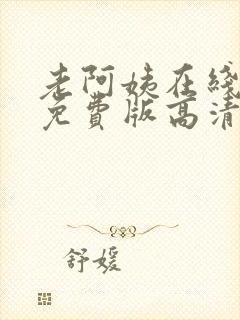 老阿姨在线
免费版高清
舒媛